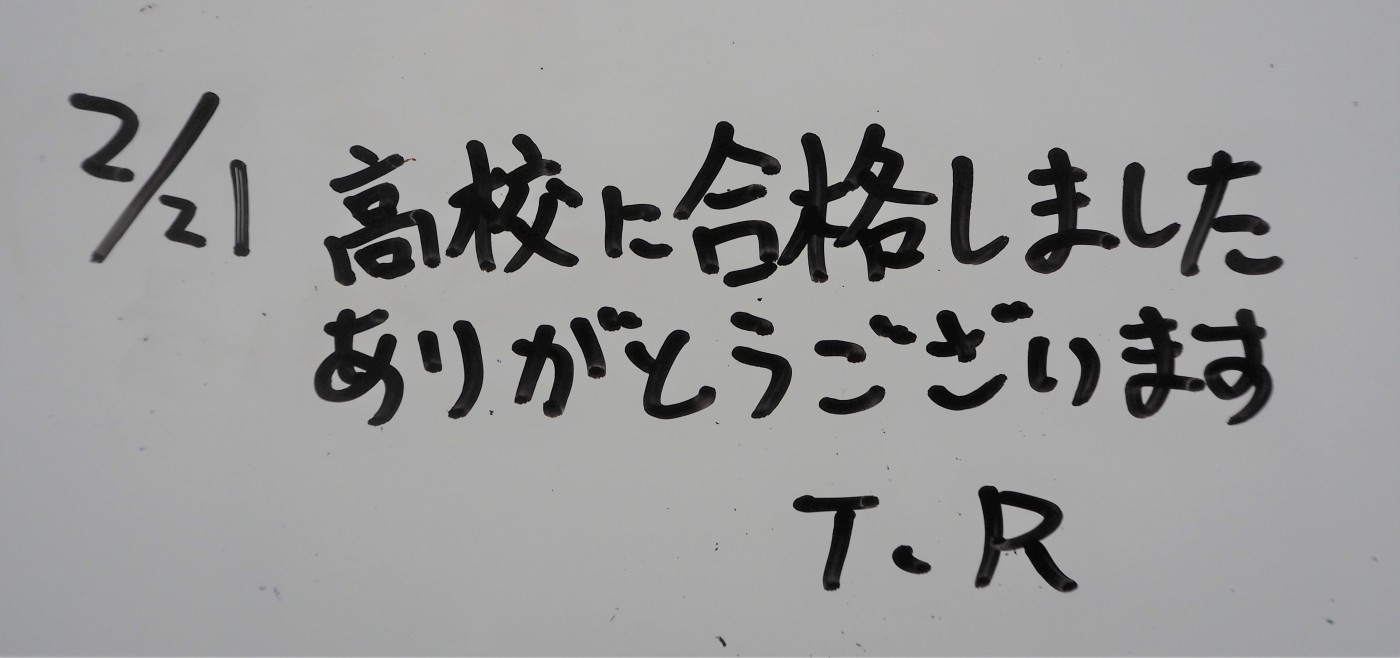 2/21 高校に合格しました
ありがとうございます
T.R